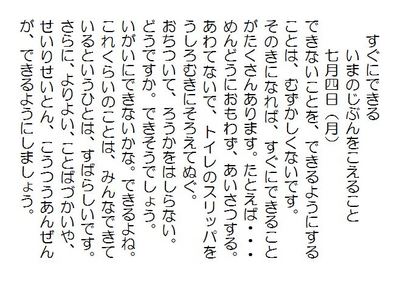 すぐにできる
いまのじぶんをこえること
七月四日（月）
できないことを、できるようにする
ことは、むずかしくないです。
そのきになれば、すぐにできること
がたくさんあります。たとえば・・・
めんどうにおもわず、あいさつする。
あわてないで、トイレのスリッパを
うしろむきにそろえてぬぐ。
おちついて、ろうかをはしらない。
どうですか。できそうでしょう。
いがいにできないかな。できるよね。
これくらいのことは、みんなできて
いるというひとは、すばらしいです。
さらに、よりよい、ことばづかいや、
せいりせいとん、こうつうあんぜん
が、できるようにしましょう。